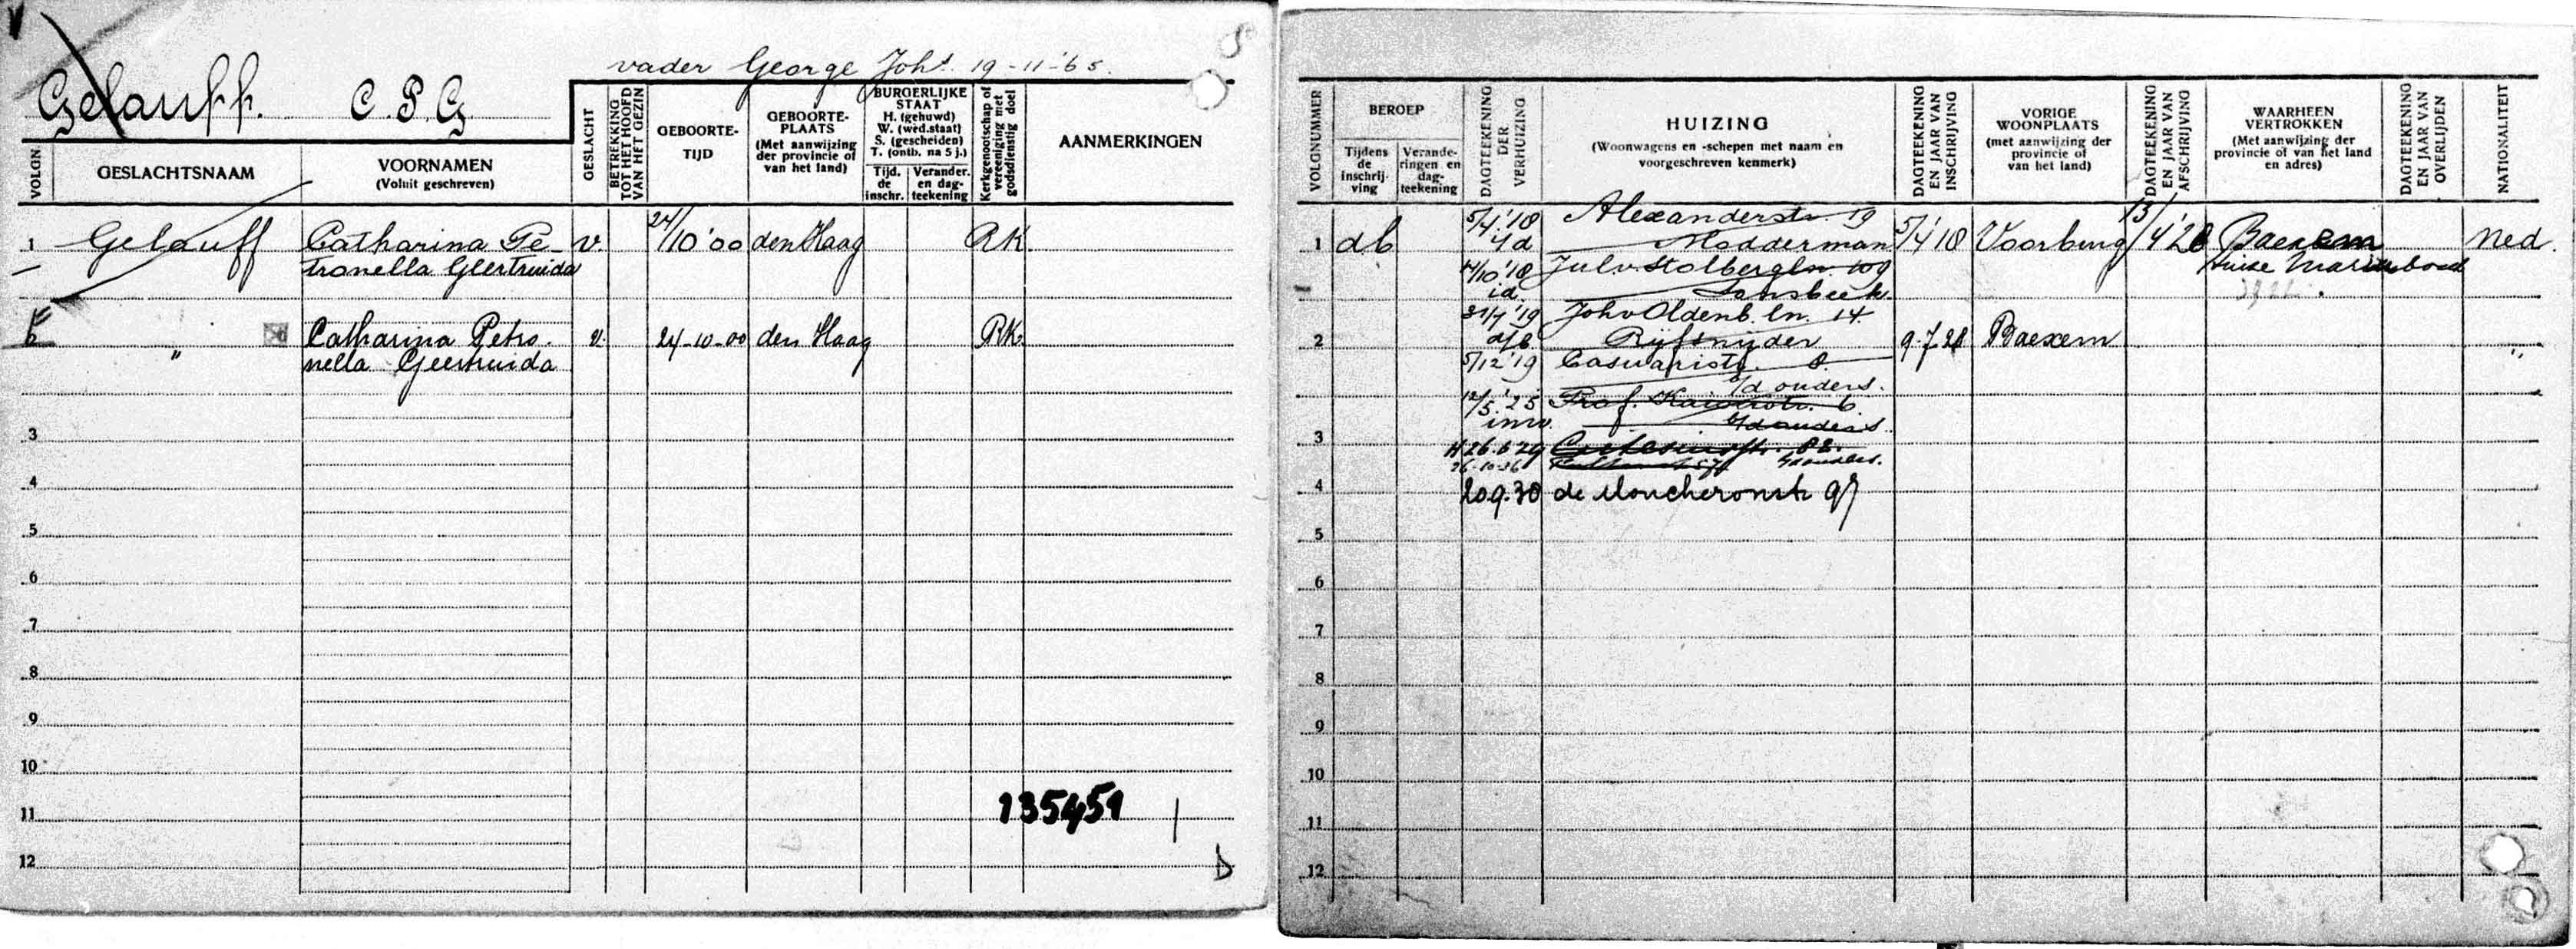 vader George Joh^s. 19-11-'65.
Gelauff. C. P. G
VOLGN.
GESLACHTSNAAM
VOORNAMEN
(Voluit geschreven)
GESLACHT
BETREKKING
TOT HET HOOFD
VAN HET GEZIN
GEBOORTE-
TIJD
GEBOORTE-
PLAATS
(Met aanwijzing
der provincie of
van het land)
BURGERLIJKE
STAAT
H. (gehuwd)
W. (wed.staat)
S. (gescheiden)
T. (ontb. na 5 j.)
Tijd.
de
inschr.
Verander.
en dag-
teekening
Kerkgenootschap of
vereeniging met
godsdienstig doel
AANMERKINGEN
1 Gelauff Catharina Pe- v. 24/10 '00 den Haag RK.
tronella Geertruida
" Catharina Petro- v. 24-10-00 den Haag RK.
nella Geertruida
3
4
5
6
7
8
9
10
135451
11
12
D
VOLGNUMMER
BEROEP
Tijdens
de
inschrij-
ving
Verande-
ringen en
dag-
teekening
DAGTEEKENING
DER
VERHUIZING
HUIZING
(Woonwagens en -schepen met naam en
voorgeschreven kenmerk)
DAGTEEKENING
EN JAAR VAN
INSCHRIJVING
VORIGE
WOONPLAATS
(met aanwijzing der
provincie of
van het land)
DAGTEEKENING
EN JAAR VAN
AFSCHRIJVING
WAARHEEN
VERTROKKEN
(Met aanwijzing der
provincie of van het land
en adres)
DAGTEEKENING
EN JAAR VAN
OVERLIJDEN
NATIONALITEIT
5/4 '18 Alexanderstr. 19
1 db Modderman 5/4 '18 Voorburg 13/4 '28 Baexem ned.
/10 '18 Jul. v. Stolbergln. 109 huize
id.
31/7 '19 Joh v Oldenb. ln. 14.
2 Rijfsnijder 9.7.28 Baexem "
5/12 '19 Casuaristr. 8.
b/d ouders.
12/5 '25 Prof. Kaiserstr. 6
inw. b/d ouders.
3 26.6 29 82.
57
4 20.9.38 de Moucheronstr 97
5
6
7
8
9
10
11
12